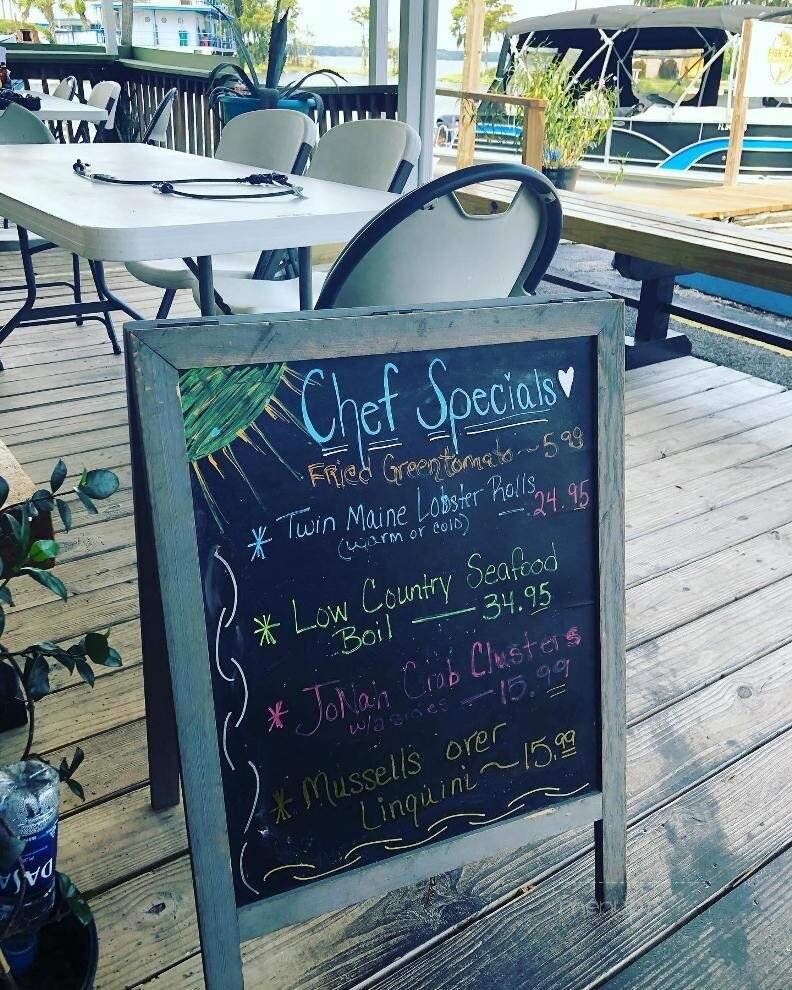 Chef Specials
FRied Greentomato ~ 5 99
* Twin Maine Lobster Rolls
(warm or cold) — 24.95
* Low Country Seafood
Boil — 34.95
* JoNah Crab Clusters
w/2 sides — 15.99
* Mussell's over
Linquini ~ 15.99
DASA